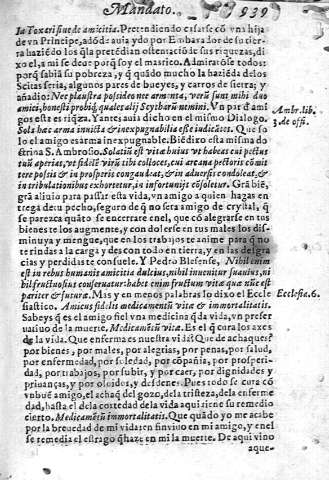 Mandato.
939
la Toxari siue de amicitia. Pretendiendo casarse cõ vna hija
de vn Principe, adõde auia ydo por Embaxador de su tier-
ra haziẽdo los q̃ la pretẽdian ostentaciõ de sus riquezas, di-
xo el, a mi se deue porq̃ soy el mas rico. Admirarõse todos:
porq̃ sabiã su pobreza, y q̃ quãdo mucho la haziẽda de los
Scitas seria, algunos pares de bueyes, y carros de sierras, y
añadio: Nec plaustra possideo nec armenta, verũ sunt mihi duo
amici, honesti probiq́; quales alij Scytharũ nemini. Vn par d'ami
gos esta es riq̃za. Y antes auia dicho en el mismo Dialogo.
Sola hæc arma inuicta & inexpugnabilia esse iudicãtes. Que so-
lo el amigo es arma inexpugnable. Biẽ dixo esta misma do
strina S. Ambrosio. Solatiũ est vitæ huius vt habeas cui pectus
tuũ aperias, vt fidelẽ virũ tibi colloces, cui arcana pectoris cõmit
tere possis & in prosperis congaudeat, & in aduersis condoleat, &
in tribulationibus exhortetur, in infortunijs cõsoletur. Grã biẽ,
grã aliuio para passar esta vida, vn amigo a quien hagas en
trega de tu pecho, seguro de q̃ no sera amigo de crystal, q̃
se parezca quãto se encerrare enel, que cõ alegrarse en tus
bienes te los augmente, y con dolerse en tus males los dis-
minuya y mengue, que en los trabajos te anime para q̃ no
te rindas a la carga y des con todo en tierra, y en las desgra
cias y perdidas te consuele. Y Pedro Blesense, Nihil enim
est in rebus humanis amicitia dulcius, nihil inuenitur suauius, ni
hil fructuosius conseruatur: habet enim fructum vitæ quæ nũc est
pariter & futuræ. Mas y en menos palabras lo dixo el Eccle
siastico. Amicus fidelis medicamẽtũ vitæ & immortalitatis.
Sabeys q̃ es el amigo fiel vna medicina q̃ da vida, vn preser
uatiuo de la muerte. Medicamẽtũ vitæ. Es el q̃ cura los axes
de la vida. Que enferma es nuestra vida? Que de achaques?
por bienes, por males, por alegrias, por penas, por salud,
por enfermedad, por soledad, por cõpañia, por prosperi-
dad, por trabajos, por subir, y por caer, por dignidades y
priuanças, y por oluidos, y desdenes. Pues todo se cura cõ
vn buẽ amigo, el achaq̃ del gozo, dela tristeza, dela enferme
dad, hasta el de la cortedad de la vida aqui tiene su remedio
cierto. Medicamẽtũ immortalitatis. Que quãdo yo me acabe
por la breuedad de mi vida: en fin viuo en mi amigo, y enel
se remedia el estrago q̃ haze en mi la muerte. De aqui vino
aque-
Ambr. lib.
3. de offi.
Ecclesiæ. 6.